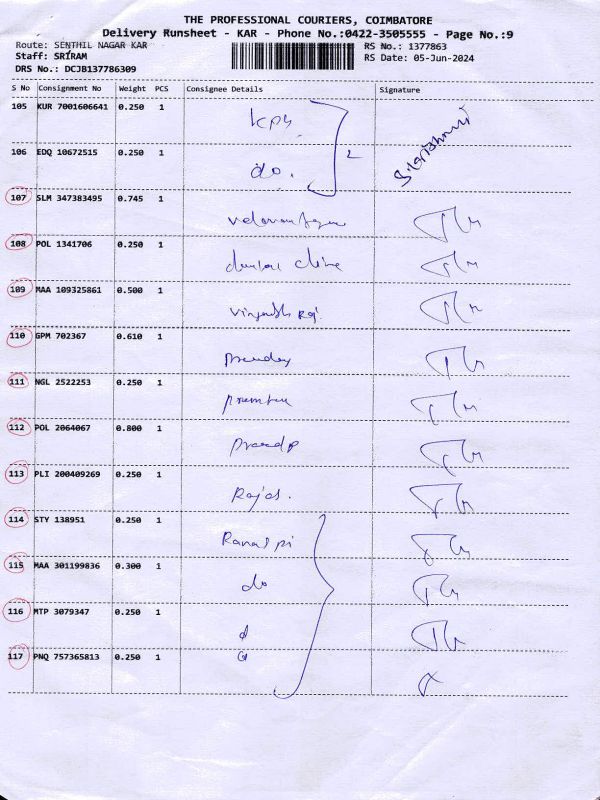 THE PROFESSIONAL COURIERS, COIMBATORE
Delivery Runsheet - KAR - Phone No.:0422-3505555 - Page No.:9
Route: SENTHIL NAGAR KAR
RS No.: 1377863
Staff: SRIRAM
RS Date: 05-Jun-2024
DRS No.: DCJB137786309
S No Consignment No Weight PCS Consignee Details Signature
105 KUR 7001606641 0.250 1 kpy
106 EDQ 10672515 0.250 1 do. 2
107 SLM 347383495 0.745 1
108 POL 1341706 0.250 1
109 MAA 109325861 0.500 1
110 GPM 702367 0.610 1
111 NGL 2522253 0.250 1
112 POL 2064067 0.800 1
113 PLI 200409269 0.250 1
114 STY 138951 0.250 1
115 MAA 301199836 0.300 1 do
116 MTP 3079347 0.250 1 d
117 PNQ 757365813 0.250 1